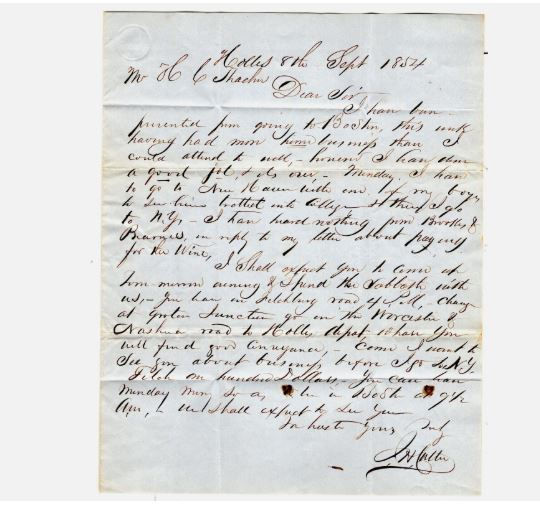 Hollis 8th Sept 1854
Mr H C Thacher
Dear Sir
I have been
prevented from going to Boston, this week
having had more home business than I
could attend to well, - however I have done
a good job, & it's over, - Monday I have
to go to New Haven with one of my boys
to see him into College - & then I go
to N.Y. - I have heard nothing from Brookes &
in reply to my letter about paying
for the Wine,
I shall expect you to come up
tomorrow evening & spend the Sabbath with
us, - You have on Fitchburg road at - change
at Groton Junction go on the Worcester &
Nashua road to Hollis depot where You
will find good conveyance, - Come I want to
see you about business before I go to N.Y.
Fetch one hundred dollars, - You can leave
Monday morn, so as to be in Bost at 9 1/2
Am, - We shall expect to see you
In haste Yours Truly